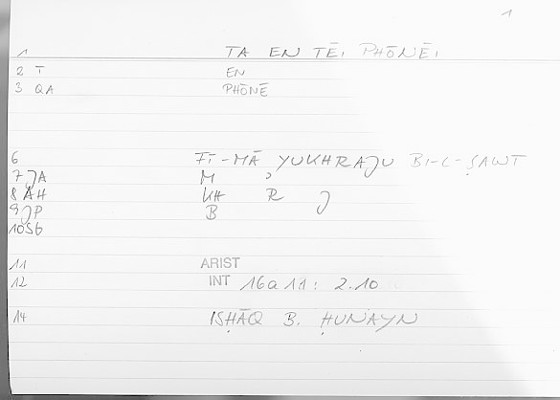 1
1 TA EN TĒI PHŌNĒI
2 T EN
3 QA PHŌNĒ
6 FĪ-MĀ YUKHRAJU BI-L-ṢAWT
7 JA M ʾ
8 AH KH R J
9 JP B
10 SG
11 ARIST
12 INT 16a11: 2.10
14 ISḤĀQ B. ḤUNAYN